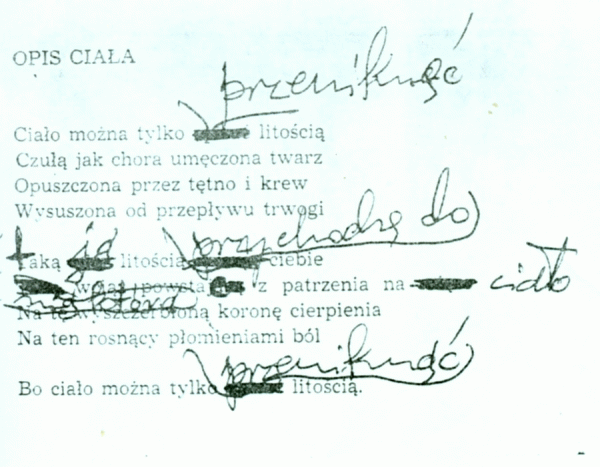 OPIS CIAŁA
przeniknąć
Ciało można tylko litością
Czułą jak chora umęczona twarz
Opuszczona przez tętno i krew
Wysuszona od przepływu trwogi
przychodzę do
Taką litością ciebie
z patrzenia na ciało
Na tę wyszczerbioną koronę cierpienia
Na ten rosnący płomieniami ból
przeniknąć
Bo ciało można tylko litością.